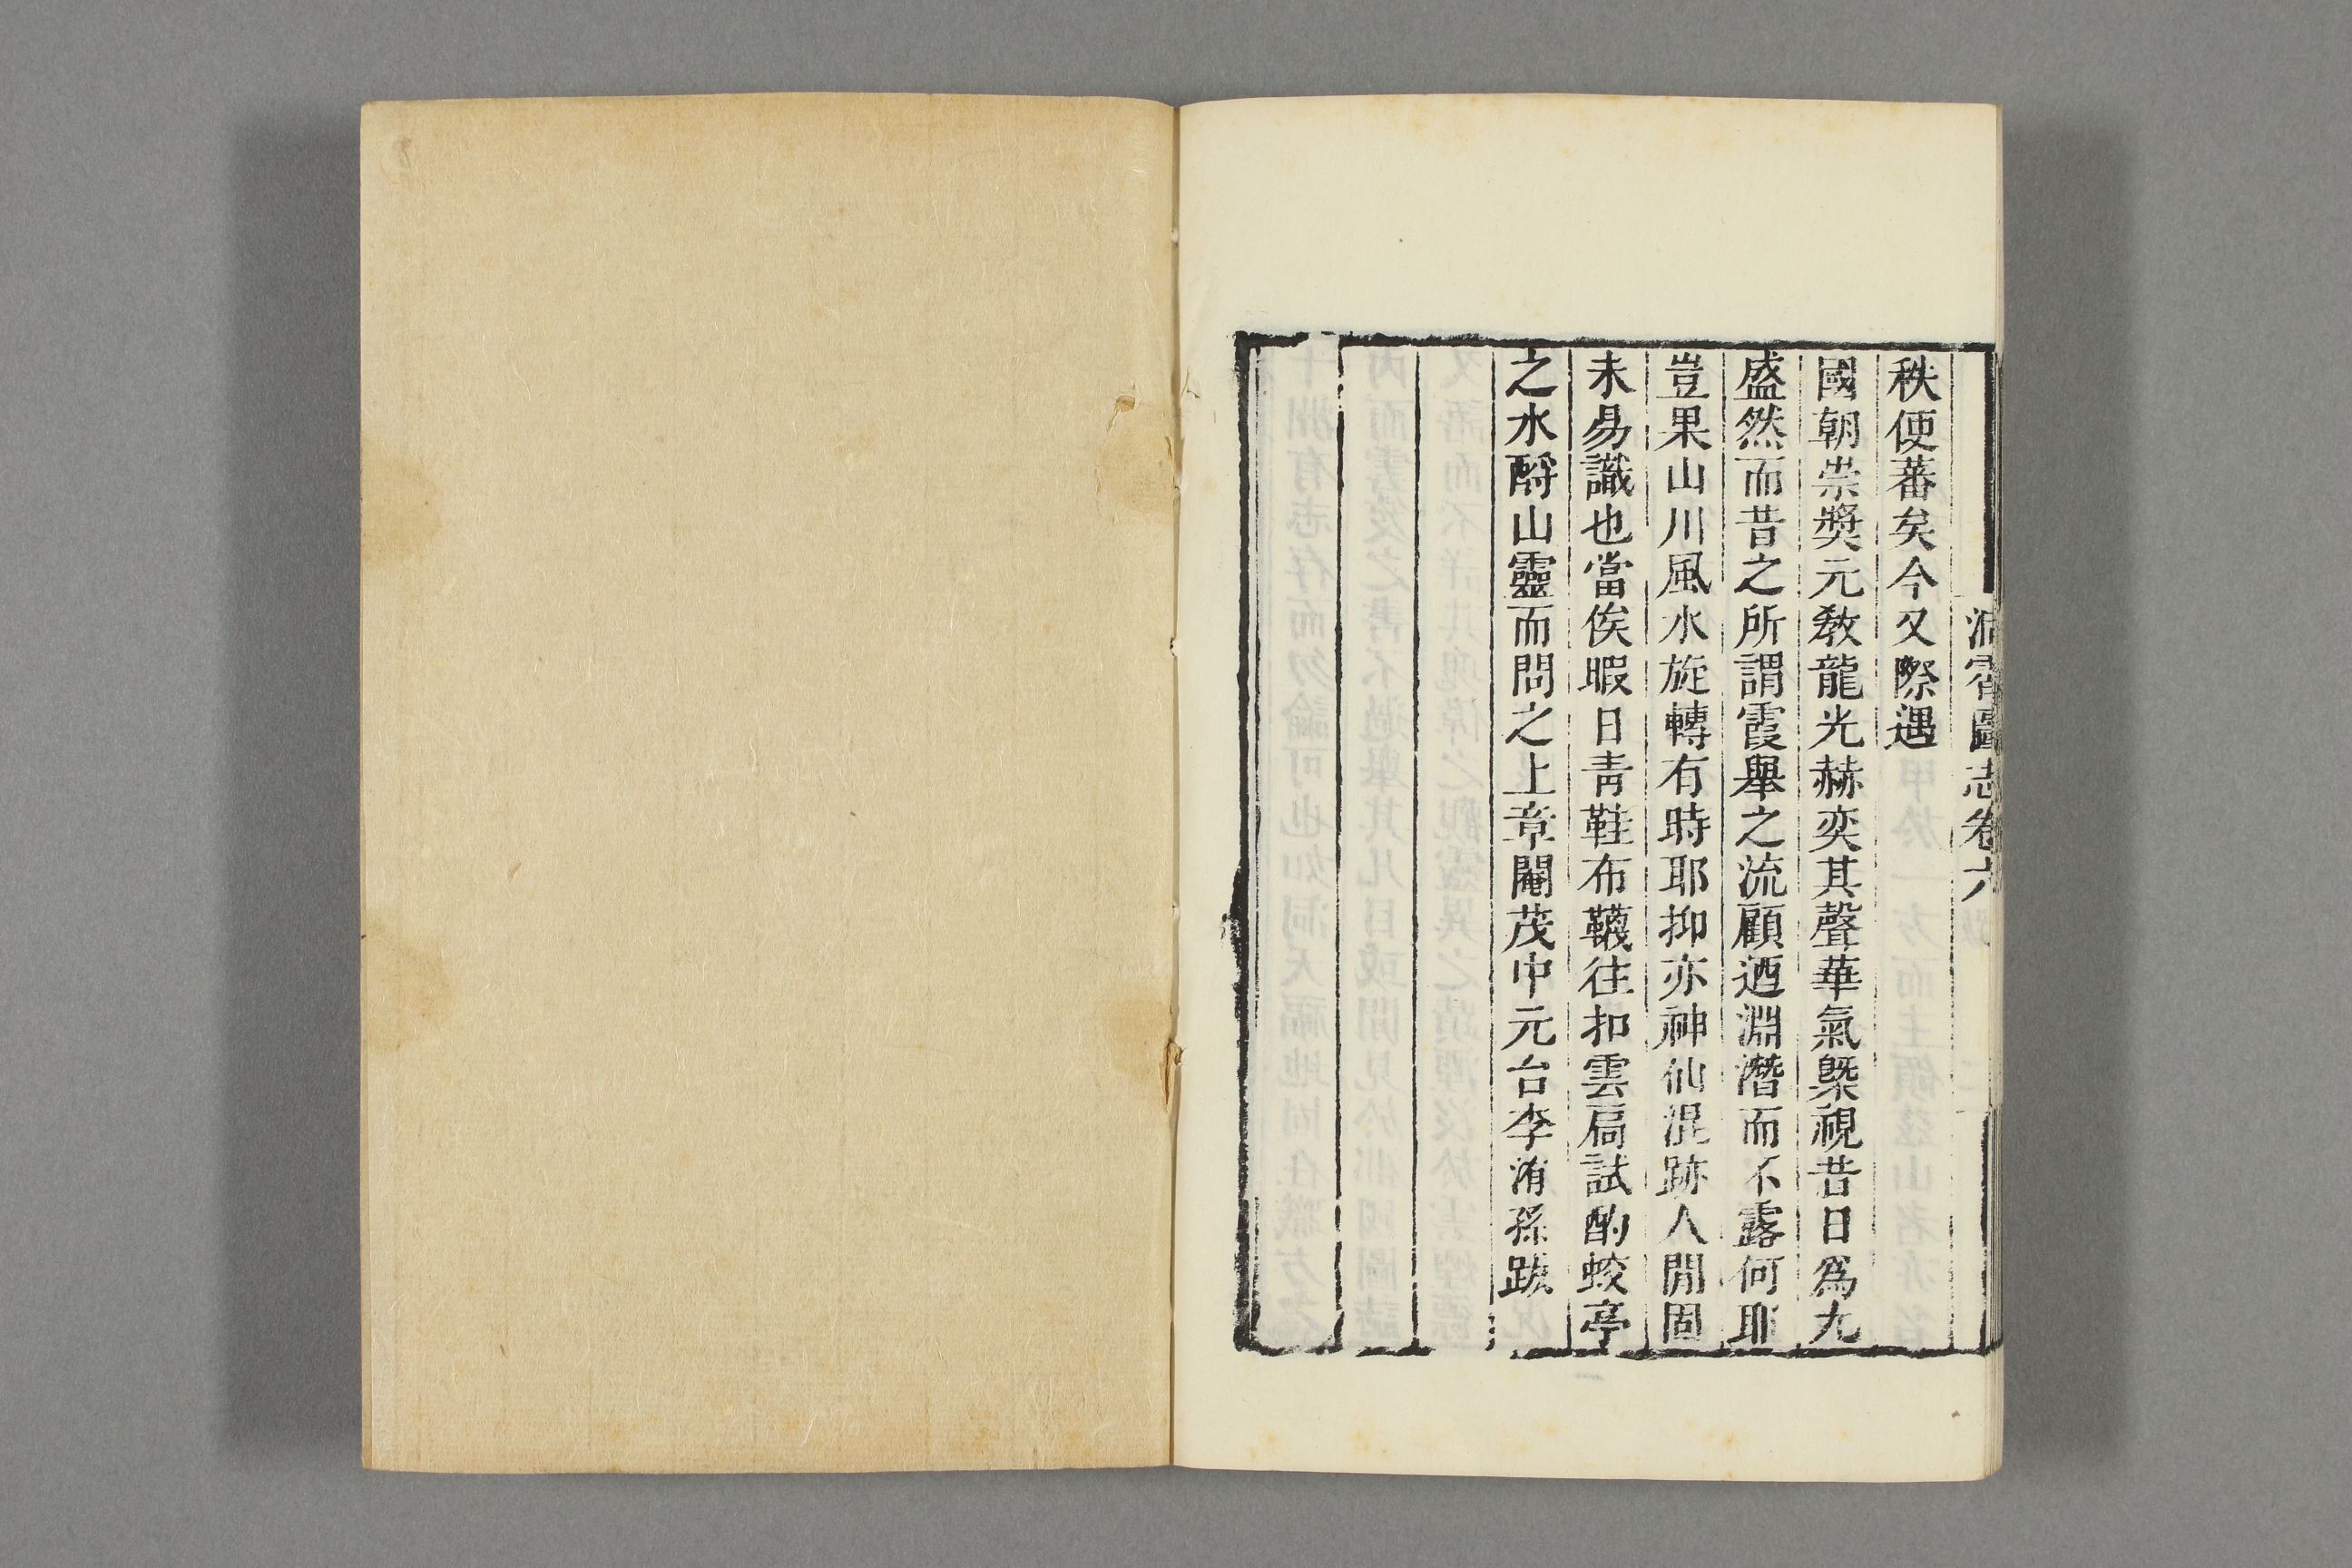 洞霄圖志卷六
秩便蕃矣今又際遇
國朝崇獎元敎龍光赫奕其聲華氣槩視昔日爲尢
盛然而昔之所謂霞舉之流顧迺淵潛而不露何耶
豈果山川風水旋轉有時耶抑亦神仙混跡人閒固
未易識也當俟暇日靑鞋布韈往扣雲扃試酌蛟亭
之水酹山靈而問之上章閹茂中元台李洧孫跋